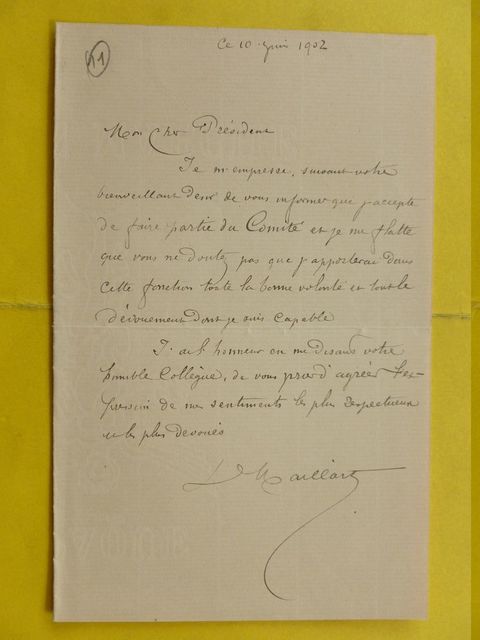 11
Ce 10 Juin 1902
Mon Cher Président
Je m'empresse, suivant votre
bienveillant désir de vous informer que j'accepte
de faire partie du Comité et je me flatte
que vous ne doutez pas que j'apporterai dans
cette fonction toute la bonne volonté et tout le
dévouement dont je suis capable
J'ai l'honneur en me disant votre
humble Collègue, de vous prier d'agréer l'ex-
pression de mes sentiments les plus respectueux
et les plus dévoués
D Maillart